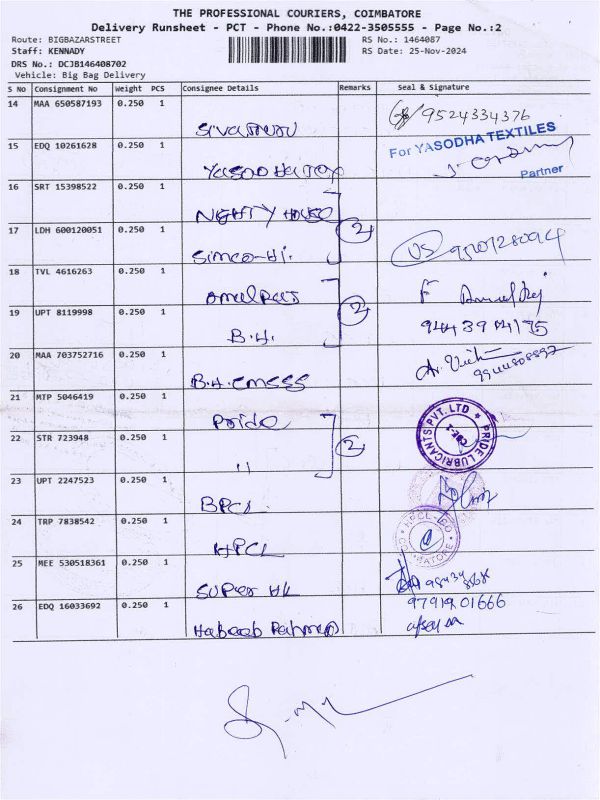 THE PROFESSIONAL COURIERS, COIMBATORE
Delivery Runsheet - PCT - Phone No.:0422-3505555 - Page No.:2
Route: BIGBAZARSTREET RS No.: 1464087
Staff: KENNADY RS Date: 25-Nov-2024
DRS No.: DCJB146408702
Vehicle: Big Bag Delivery
S No Consignment No Weight PCS Consignee Details Remarks Seal & Signature
14 MAA 650587193 0.250 1 9524334376
15 EDQ 10261628 0.250 1 For YASODHA TEXTILES
Partner
16 SRT 15398522 0.250 1 NIGHTY HOUSE
2
17 LDH 600120051 0.250 1 US
18 TVL 4616263 0.250 1 F
2
19 UPT 8119998 0.250 1 B.H.
20 MAA 703752716 0.250 1 B.H.
21 MTP 5046419 0.250 1 Pride PRIDE LUBRICANTS PVT. LTD
CBE-1
22 STR 723948 0.250 1 " 2
23 UPT 2247523 0.250 1 BPCL
24 TRP 7838542 0.250 1 HPCL
HPCL
25 MEE 530518361 0.250 1 Super
26 EDQ 16033692 0.250 1 Habeeb Rahman 9791901666